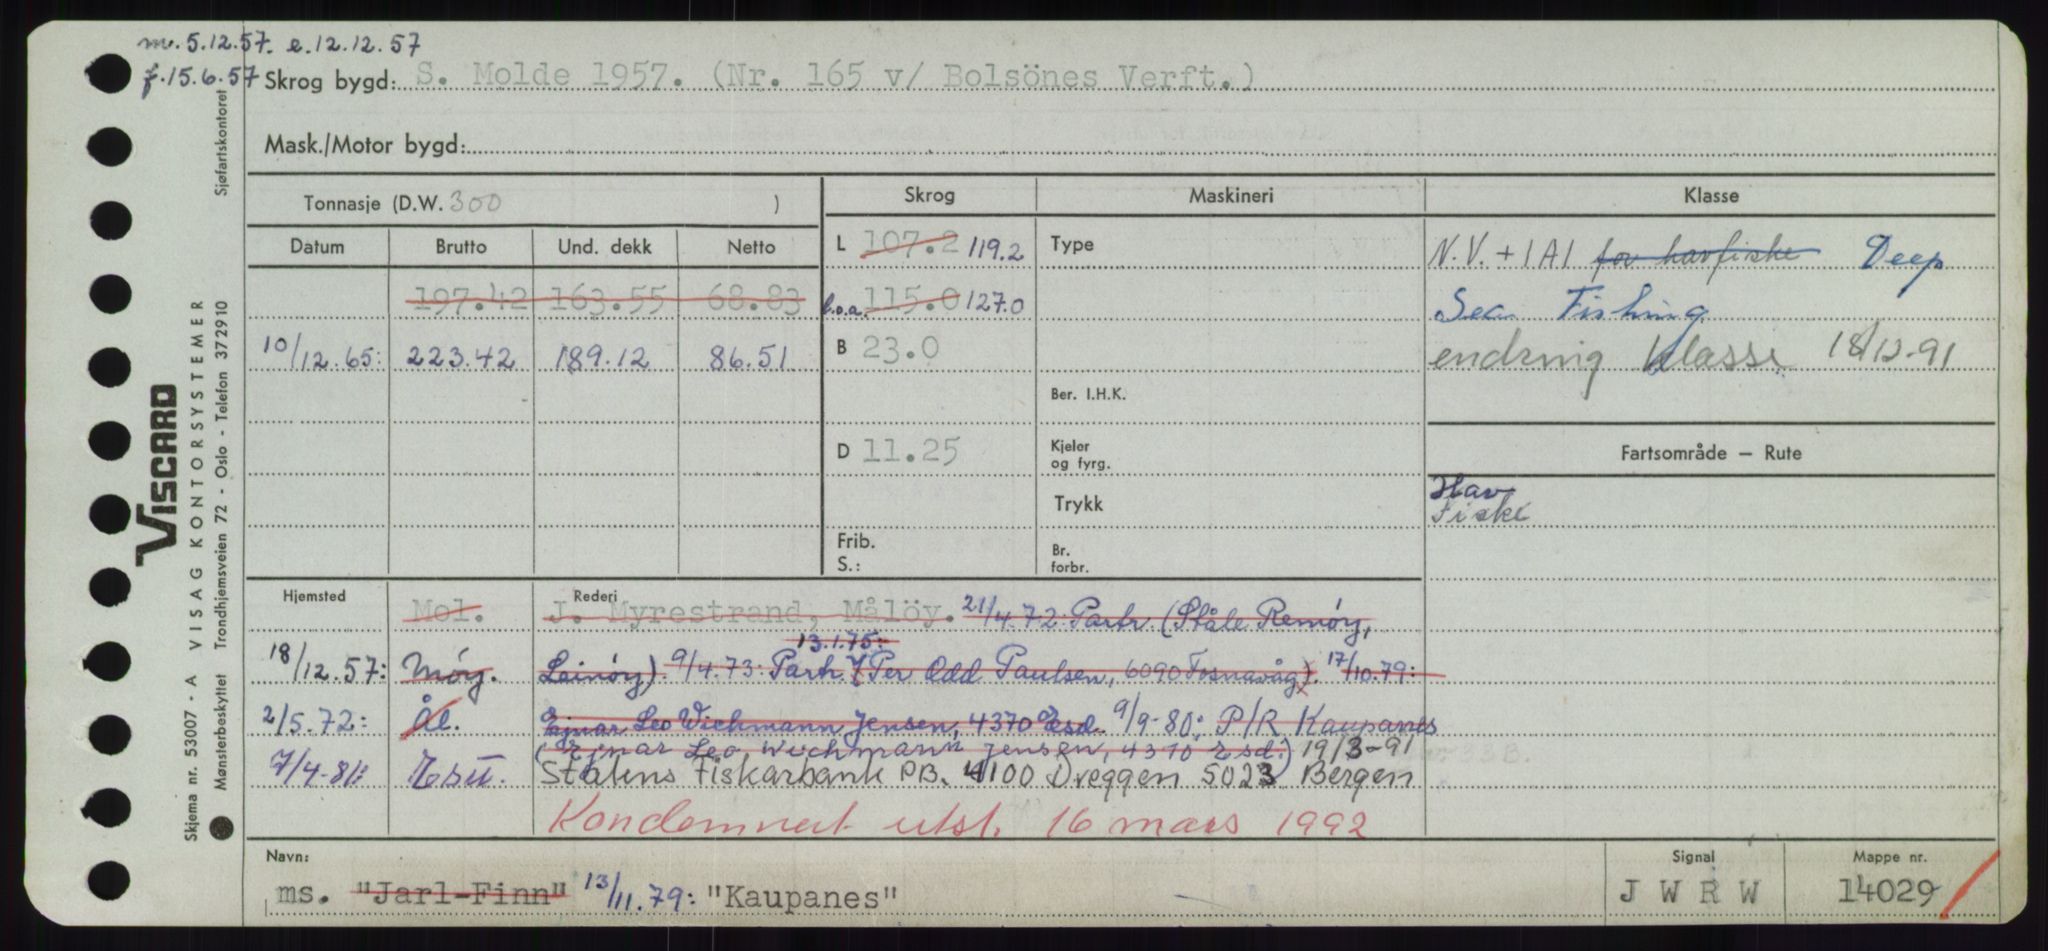 m. 5.12.57. e.12.12.57
f.15.6.57
Skrog bygd: S. Molde 1957. (Nr. 165 v/ Bolsönes Verft.)
Mask./Motor bygd:
Tonnasje (D.W. 300 )
Datum Brutto Und. dekk Netto
197.42 163.55 68.83
10/12.65: 223.42 189.12 86.51
Skrog
L 107.2 119.2
l.o.a. 115.0 127.0
B 23.0
D 11.25
Frib.
S.:
Maskineri
Type
Ber. I.H.K.
Kjeler
og fyrg.
Trykk
Br.
forbr.
Klasse
N.V. + 1A1 for havfiske Deep
Sea Fishing
endring klasse 18/12-91
Fartsområde – Rute
Hav
Fiske
Hjemsted Rederi
Mol. J. Myrestrand, Målöy. 21/4.72 Partr. (Ståle Remøy,
13.1.75:
18/12.57: Møy. Leinøy). 9/4.73: Partr. (Per Odd Paulsen, 6090 Fosnavåg). 17/10.79:
2/5.72: Ål. Ejnar Leo Wichmann Jensen, 4370 Egsd. 9/9-80: P/R Kaupanes
(Ejnar Leo Wichmann Jensen, 4370 Egsd.) 19/3-91
7/4-81: Esu. Statens Fiskarbank PB. 4100 Dreggen 5023 Bergen
Kondemnert utst. 16 mars 1992
Navn: Signal Mappe nr.
ms. "Jarl-Finn" 13/11.79: "Kaupanes" J W R W 14029
VISCARD
VISAG KONTORSYSTEMER
Skjema nr. 53007 - A
Mønsterbeskyttet Trondhjemsveien 72 - Oslo - Telefon 372910 Sjøfartskontoret